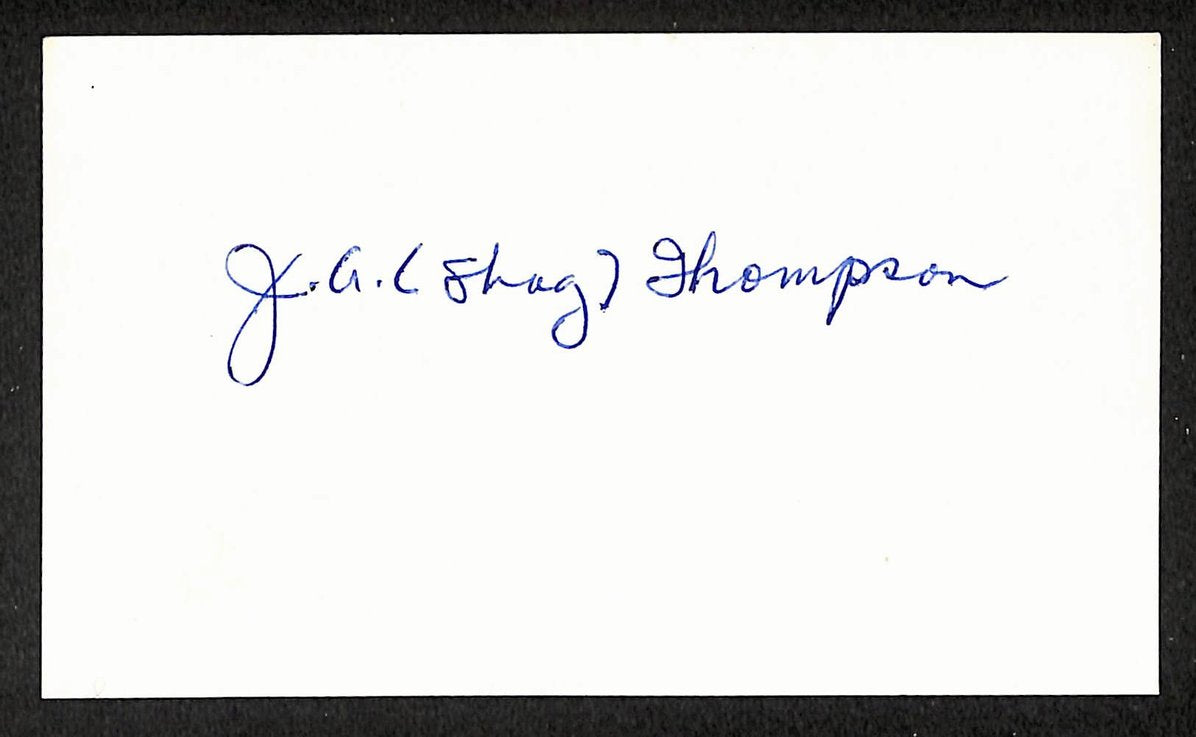 J. A. (Shag) Thompson